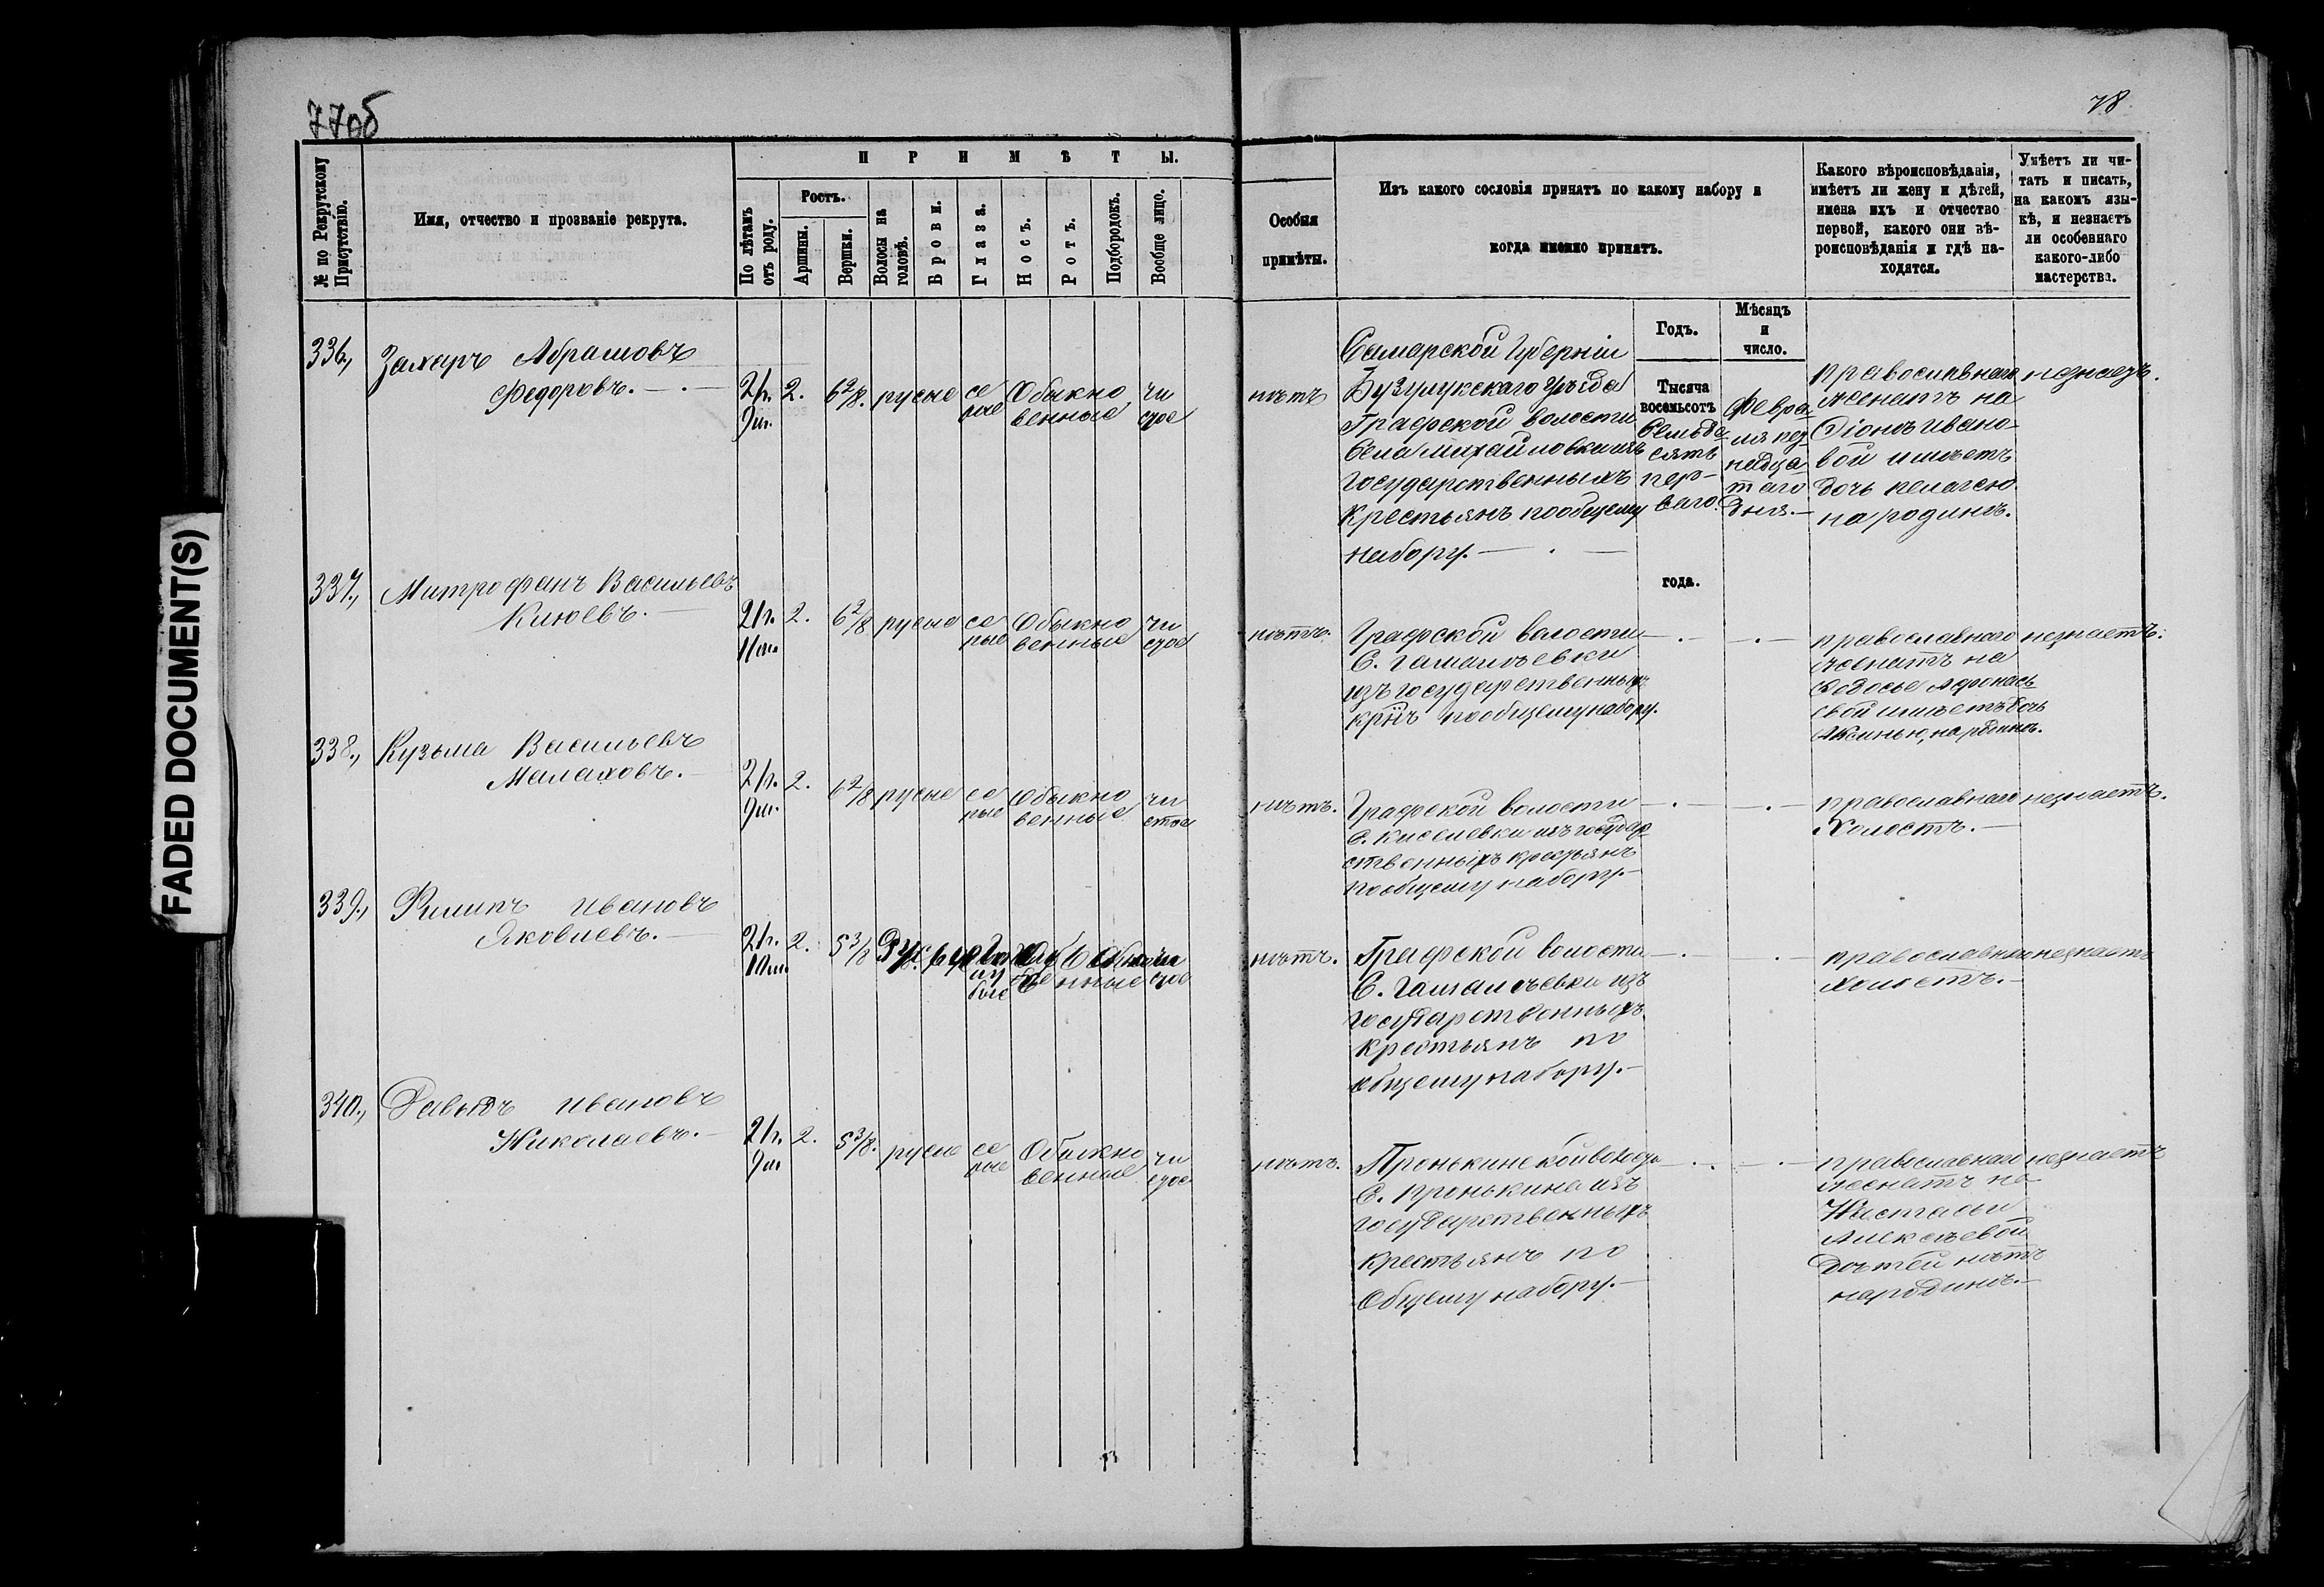 77об
78
FADED DOCUMENT(S)
№ по Рекрутскому Присутствію.
Имя, отчество и прозваніе рекрута.
ПРИМѢТЫ.
По лѣтамъ отъ роду.
Ростъ.
Аршины.
Вершки.
Волосы на головѣ.
Брови.
Глаза.
Носъ.
Ротъ.
Подбородокъ.
Вообще лицо.
Особыя примѣты.
Изъ какого сословія принятъ по какому набору и
когда именно принятъ.
Какого вѣроисповѣданія,
имѣетъ ли жену и дѣтей,
имена ихъ и отчество
первой, какого они вѣ-
роисповѣданія и гдѣ на-
ходятся.
Умѣетъ ли чи-
тать и писать,
на какомъ язы-
кѣ, и незнаетъ
ли особеннаго
какого-либо
мастерства.
Годъ.
Мѣсяцъ
и
число.
336.,
Захаръ Абрамовъ
Федоровъ.
21г.
9м.
2.
6 2/8.
русые
се
рые
Обыкно
венные
чи
стое
нѣтъ
Самарской Губерніи
Бузулукскаго Уѣзда
Графской волости
Села Михайловки изъ
Государственныхъ
Крестьянъ пообщему
набору.
Тысяча
восемьсотъ
Семьде
сять
пер-
ваго
года.
Февра
ля
надца
таго
дня.
православнаго
женатъ на
Ивано
вой имѣетъ
дочь Пелагею
на родинѣ.
незнаетъ.
337.,
Митрофанъ Васильевъ
Клюевъ.
21г.
11м.
2.
6 2/8
русые
се
рые
Обыкно
венные
чи
стое
нѣтъ.
Графской волости
С. Гамалѣевки
изъ государственныхъ
крнъ пообщему набору.
православнаго
женатъ на
Федосье Афонась
евой имѣетъ дочь
на родинѣ.
незнаетъ.
338.,
Кузьма Васильевъ
Малаховъ.
21г.
9м.
2.
6 2/8
русые
се
рые
Обыкно
венные
чи
стое
нѣтъ.
Графской волости
С. Киселевки изъ государ
ственныхъ крестьянъ
пообщему набору.
православнаго
Холостъ.
незнаетъ.
339.,
Филипъ Ивановъ
Яковлевъ.
21г.
10м.
2.
5 3/8
го
лу
бые
венные
чи
стое
нѣтъ.
Графской волости
С. Гамалѣевки изъ
государственныхъ
крестьянъ по
общему набору.
православнаго
холостъ.
незнаетъ
340.,
Давыдъ Ивановъ
Николаевъ.
21г.
9м
2.
5 3/8.
русые
се
рые
Обыкно
венные
чи
стое
нѣтъ.
Пронькинской волости
С. Пронькина изъ
государственныхъ
крестьянъ по
Общему набору.
православнаго
женатъ на
Настасьи
Алексѣевой
дѣтей нѣтъ
народинѣ.
незнаетъ